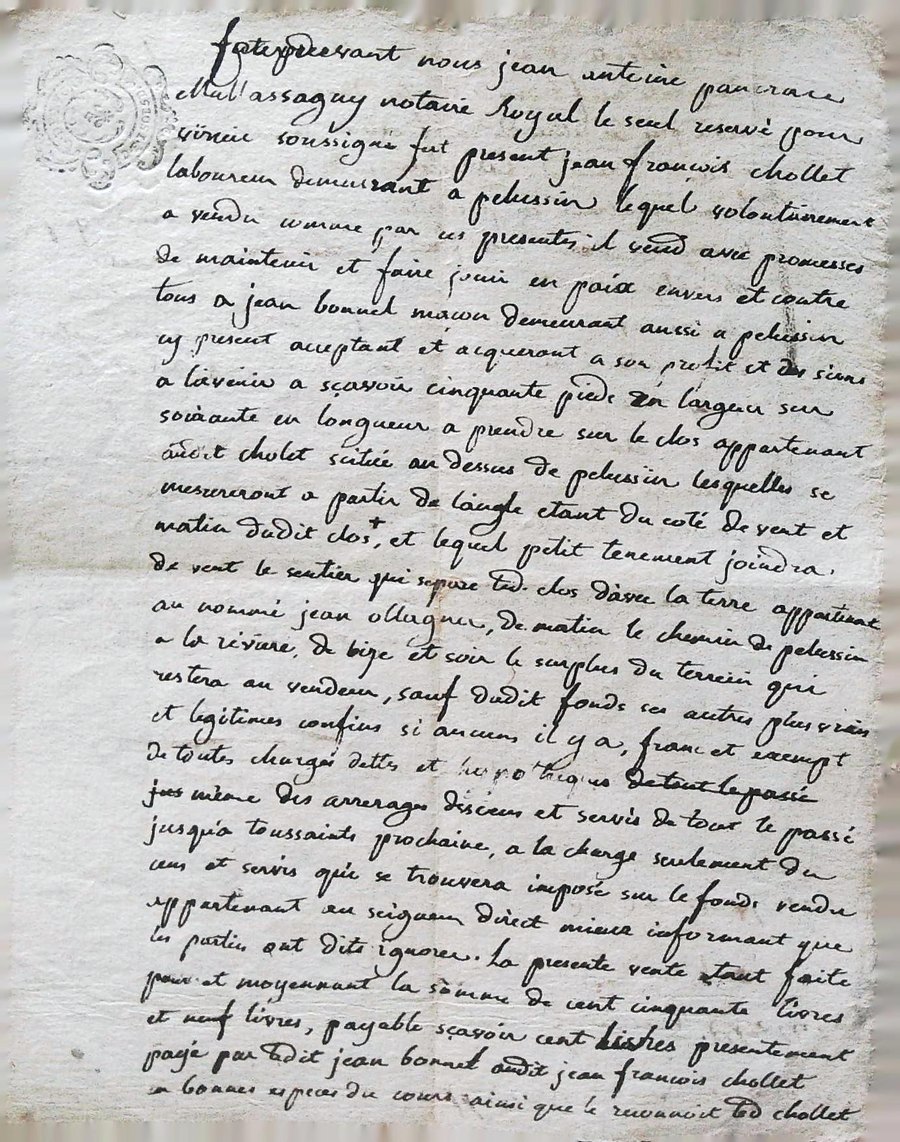 pardevant nous jean antoine pancrace
Mull'assaguy notaire Royal le seul reservé pour
soussigné fut present jean francois chollet
laboureur demeurant a pelussin lequel volontairement
a vendu comme par ces presentes il vend avec promesses
de maintenir et faire jouir en paix envers et contre
tous a jean bonnel macon demeurant aussi a pelussin
cy present acceptant et acquerant a son profit et des siens
a l'avenir a sçavoir cinquante pieds en largeur sur
soixante en longueur a prendre sur le clos appartenant
audit cholet scitué au dessus de pelussin lesquelles se
mesureront a partir de l'angle etant du coté de vent et
matin dudit clos, et lequel petit tenement joindra.
de vent le sentier qui separe led. clos d'avec la terre appartenant
au nommé jean ollagnier, de matin le chemin de pelussin
a la riviere, de bize et soir le surplus du terrein qui
restera au vendeur, sauf dudit fonds ses autres plus vrais
et legitimes confins si aucuns il y a, franc et exempt
de toutes charges dettes et hypotheques de tout le passé
jus même des arrerages des cens et servis de tout le passé
jusqu'a toussaints prochaine, a la charge seulement du
cens et servis qui se trouvera imposé sur le fonds vendu
appartenant au seigneur direct mieux informant que
les parties ont dits ignorer. La presente vente etant faite
pour et moyennant la somme de cent cinquante livres
et neuf livres, payable sçavoir cent livres presentement
payé par ledit jean bonnel audit jean francois chollet
en bonnes especes du cours ainsi que le reconnoit led chollet